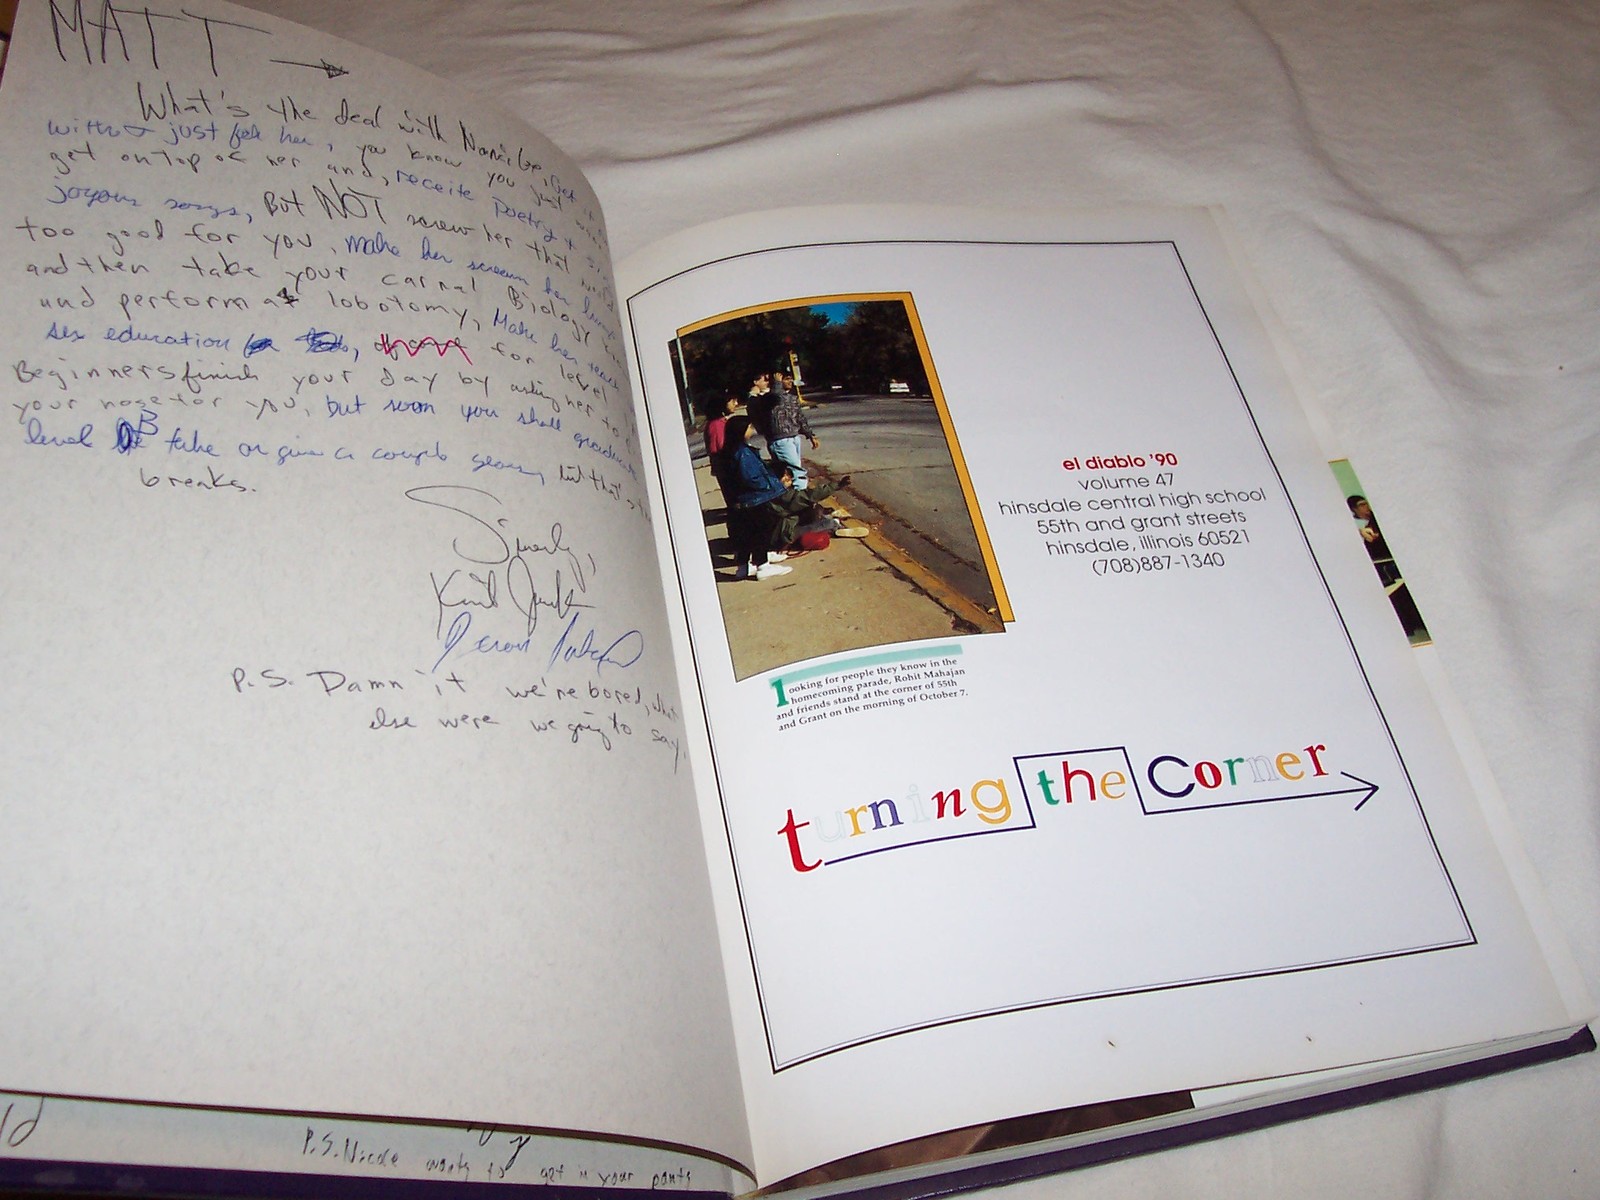 MATT
What's the deal with
without just for her, you know you just
get on top of her and, receite Poetry +
joyous songs, But NOT screw her that
too good for you, make her scream her
and then take your carnal Biology
and perform a lobotomy, Make her
sex education for level
Beginners finish your day by asking her to
your nose for you, but soon you shall graduate
level B take or give a couple years, but that's the
breaks.
Sincerly,
P.S. Damn it we're bored, what
else were we going to say.
P.S. Nicole wants to get in your pants
el diablo '90
volume 47
hinsdale central high school
55th and grant streets
hinsdale, illinois 60521
(708)887-1340
looking for people they know in the
homecoming parade, Rohit Mahajan
and friends stand at the corner of 55th
and Grant on the morning of October 7.
turning the Corner